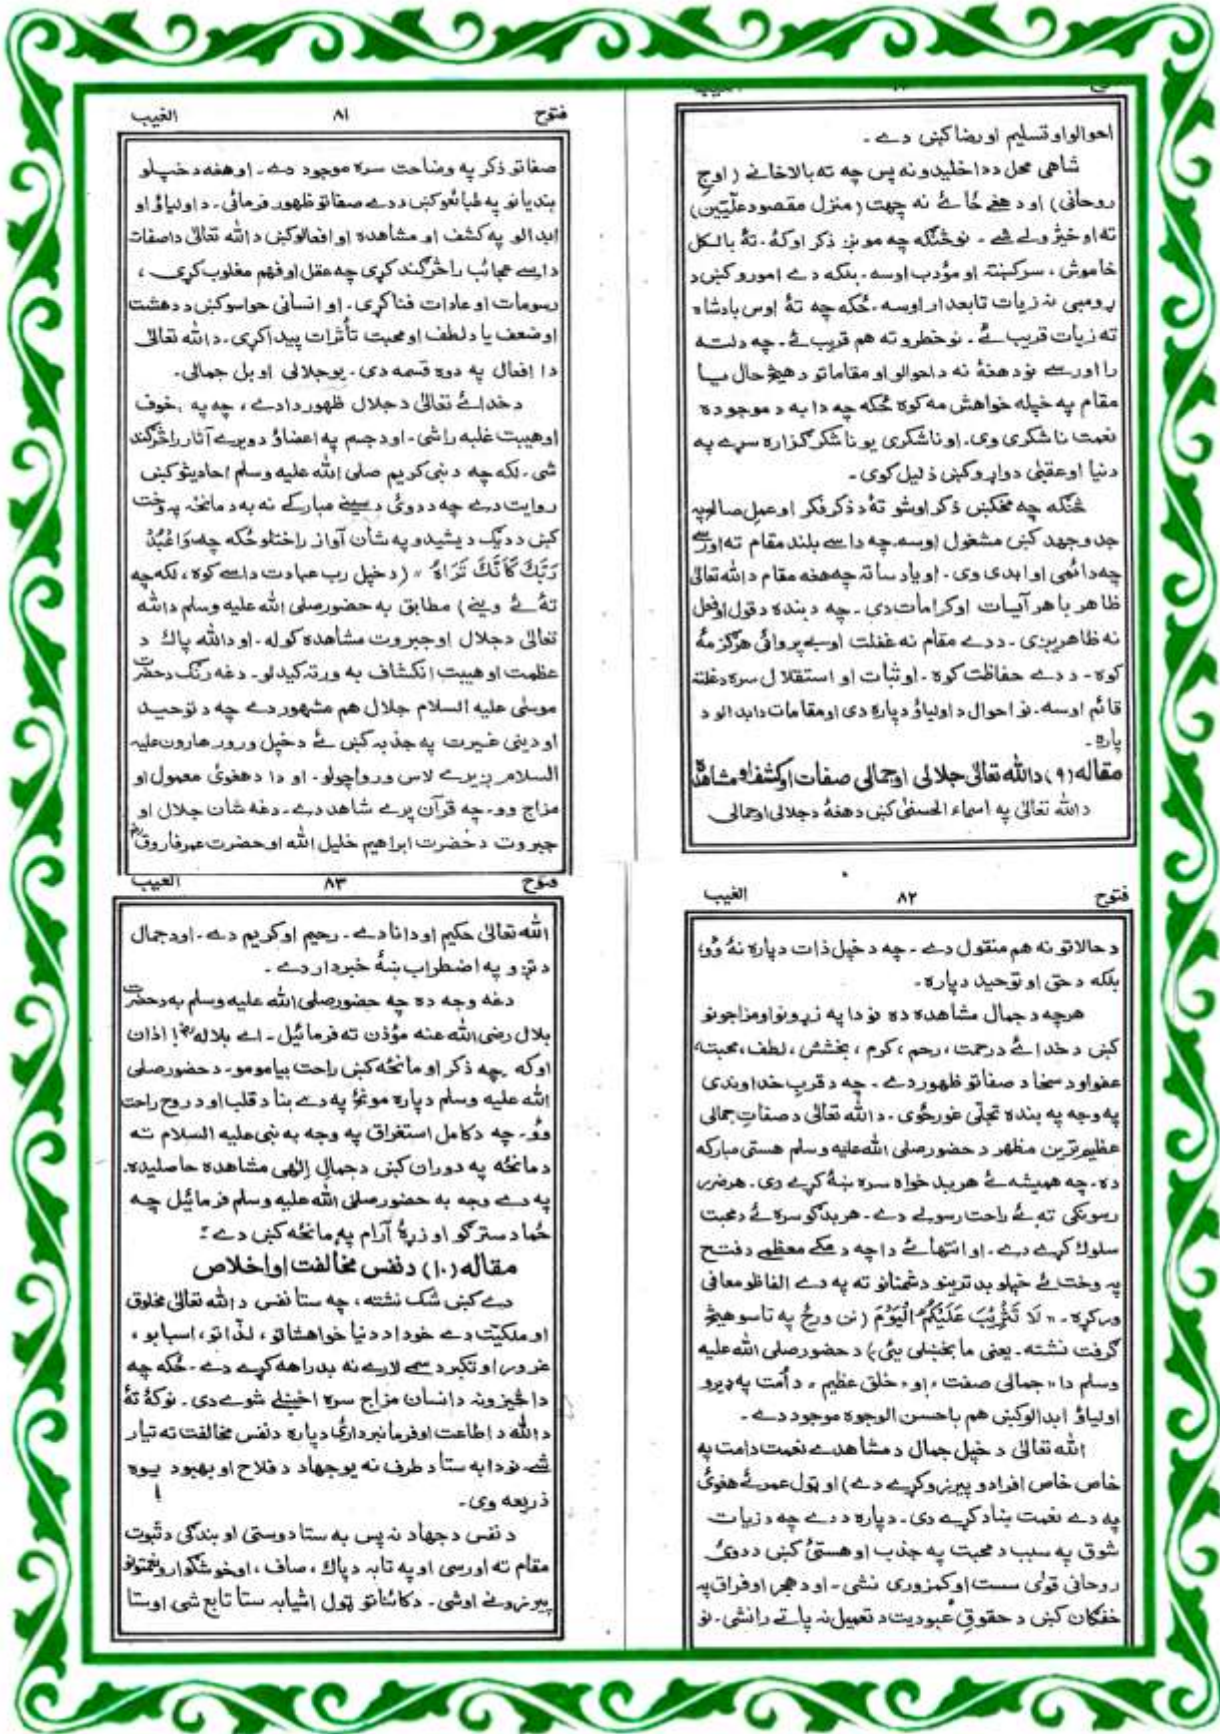 احوالو او تسليم او رضا کښې دے۔
شاهي محل د داخليدو نه پس چه ته بالاخانے (اوج
روحانى) او د هغے ځائے نه چهت (منزل مقصود علّيّين)
ته او خيژولے شے۔ نو څنګه چه مونږ ذکر اوکۀ۔ تۀ بالکل
خاموش، سرکښته او مؤدب اوسه۔ بلکه دے امورو کښې د
ړومبى نه زيات تابعدار اوسه۔ ځکه چه تۀ اوس بادشاه
ته زيات قريب ئے۔ نو خطرو ته هم قريب ئے۔ چه دلته
را اورسے نو د هغۀ نه د احوالو او مقاماتو د هيڅ حال يا
مقام په خپله خواهش مه کوه ځکه چه دا به د موجوده
نعمت ناشکرى وى۔ او ناشکرى يو ناشکرګزاره سړے په
دنيا او عقبىٰ دواړو کښې ذليل کوى۔
څنګه چه مخکښې ذکر اوشو تۀ د ذکر فکر او عمل صالح په
جد و جهد کښې مشغول اوسه۔ چه داسے بلند مقام ته اورسے
چه دائمى او ابدى وى۔ او ياد ساته چه هغه مقام د الله تعالىٰ
ظاهر باهر آيات او کرامات دى۔ چه د بنده د قول او فعل
نه ظاهريږى۔ د دے مقام نه غفلت او بے پروائى هرګز مۀ
کوه۔ د دے حفاظت کوه۔ او ثبات او استقلال سره دغلته
قائم اوسه۔ نو احوال د اولياؤ دپاره دى او مقامات د ابدالو د
پاره۔
مقاله (۹) د الله تعالىٰ جلالى او جمالى صفات او کشف او مشاهده
د الله تعالىٰ په اسماء الحسنىٰ کښې د هغۀ د جلالى او جمالى
فتوح ۸۱ الغيب
صفاتو ذکر په وضاحت سره موجود دے۔ او هغه د خپلو
بنديانو په طبائعو کښې د دے صفاتو ظهور فرمائى۔ د اولياؤ او
ابدالو په کشف او مشاهده او افعالو کښې د الله تعالىٰ د اصفات
داسے عجائب راڅرګند کړى چه عقل او فهم مغلوب کړى،
رسومات او عادات فنا کړى۔ او انسانى حواسو کښې د دهشت
او ضعف يا د لطف او محبت تأثرات پيدا کړى۔ د الله تعالىٰ
دا افعال په دوه قسمه دى۔ يو جلالى او بل جمالى۔
د خدائے تعالىٰ د جلال ظهور دا دے، چه په خوف
او هيبت غلبه راشى۔ او د جسم په اعضاؤ د ويرے آثار راڅرګند
شى۔ لکه چه د نبى کريم صلى الله عليه وسلم احاديثو کښې
روايت دے چه د دوئ د سينے مبارکے نه به د مانځه په وخت
کښې د ديګ د يشيدو په شان آواز راختلو ځکه چه وَاعْبُدْ
رَبَّكَ كَأَنَّكَ تَرَاهُ ״ (د خپل رب عبادت داسے کوه، لکه چه
تۀ ئے وينے) مطابق به حضور صلى الله عليه وسلم د الله
تعالىٰ د جلال او جبروت مشاهده کوله۔ او د الله پاك د
عظمت او هيبت انکشاف به ورته کيدلو۔ دغه رنګ د حضرت
موسىٰ عليه السلام جلال هم مشهور دے چه د توحيد
او دينى غيرت په جذبه کښې ئے د خپل ورور هارون عليه
السلام ږيرے لاس ور واچولو۔ او دا د هغوئ معمول او
مزاج وو۔ چه قرآن پرے شاهد دے۔ دغه شان جلال او
جبروت د حضرت ابراهيم خليل الله او حضرت عمر فاروقؓ
فتوح ۸۲ الغيب
د حالاتو نه هم منقول دے۔ چه د خپل ذات دپاره نۀ وُو،
بلکه د حق او توحيد دپاره۔
هرچه د جمال مشاهده ده نو دا په زړونو او مزاجونو
کښې د خدائے د رحمت، رحم، کرم، بخشش، لطف، محبت،
عفو او د سخا د صفاتو ظهور دے۔ چه د قرب خداوندى
په وجه په بنده تجلّى غورځوى۔ د الله تعالىٰ د صفاتِ جمالى
عظيم ترين مظهر د حضور صلى الله عليه وسلم هستى مبارکه
ده۔ چه هميشه ئے هر بد خواه سره ښۀ کړے دى۔ هر ضرر
رسونکى ته ئے راحت رسولے دے۔ هر بدګو سره ئے د محبت
سلوك کړے دے۔ او انتهائے دا چه د مکے معظمے د فتح
په وخت ئے خپلو بدترينو دشمنانو ته په دے الفاظو معافى
ورکړه۔ ״ لَا تَثْرِيْبَ عَلَيْكُمُ الْيَوْمَ (نن ورځ په تاسو هيڅ
ګرفت نشته۔ يعنى ما بخښلى يئى) د حضور صلى الله عليه
وسلم دا ״ جمالى صفت ״ او ״ خلق عظيم ״ د اُمت په ډيرو
اولياؤ ابدالو کښې هم باحسن الوجوه موجود دے۔
الله تعالىٰ د خپل جمال د مشاهدے نعمت د امت په
خاص خاص افرادو پيرزو کړے دے) او ټول عمر ئے هغوئ
په دے نعمت ښاد کړے دى۔ دپاره د دے چه د زيات
شوق په سبب د محبت په جذب او هستئ کښې د دوئ
روحانى قوىٰ سست او کمزورى نشى۔ او د هجر او فراق په
خفګان کښې د حقوقِ عُبوديت د تعميل نه پاتے رانشى۔ نو
فتوح ۸۳ الغيب
الله تعالىٰ حکيم او دانا دے۔ رحيم او کريم دے۔ او د جمال
د تږو په اضطراب ښۀ خبردار دے۔
دغه وجه ده چه حضور صلى الله عليه وسلم به د حضرت
بلال رضى الله عنه مؤذن ته فرمائيل۔ اے بلالهؓ! اذان
اوکه چه ذکر او مانځه کښې راحت بيا مومو۔ د حضور صلى
الله عليه وسلم دپاره مونځ په دے بنا د قلب او د روح راحت
وُو۔ چه د کامل استغراق په وجه به نبى عليه السلام ته
د مانځه په دوران کښې د جمالِ إلٰهى مشاهده حاصليده۔
په دے وجه به حضور صلى الله عليه وسلم فرمائيل چه
ځما د سترګو او زړۀ آرام په مانځه کښې دے؛
مقاله (۱۰) د نفس مخالفت او اخلاص
دے کښې شک نشته، چه ستا نفس د الله تعالىٰ مخلوق
او ملکيّت دے خو دا د دنيا خواهشاتو، لذّاتو، اسبابو،
غرور او تکبر د سمے لارے نه بدراهه کړے دے۔ ځکه چه
دا څيزونه د انسان مزاج سره اخښلے شوے دى۔ نو کۀ تۀ
د الله د اطاعت او فرمانبردارئ دپاره د نفس مخالفت ته تيار
شے۔ نو دا به ستا د طرف نه يو جهاد د فلاح او بهبود يوه
ذريعه وى۔
د نفس د جهاد نه پس به ستا دوستى او بندګى د ثبوت
مقام ته اورسى او په تا به د پاك، صاف، او خوشګوارو نعمتونو
پيرزونے اوشى۔ د کائناتو ټول اشيا به ستا تابع شى او ستا